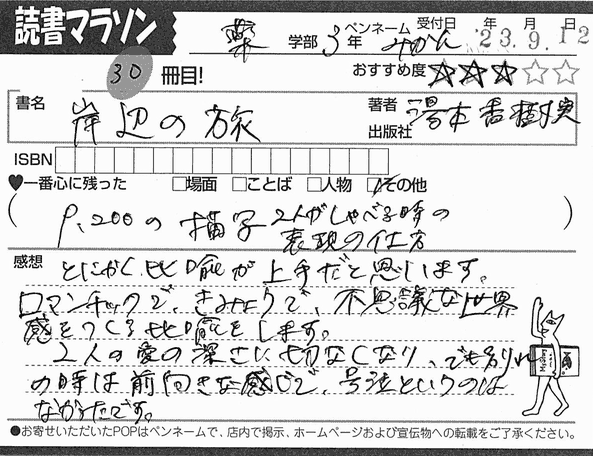 読書マラソン
薬 学部 3年 ペンネーム みかん 受付日 '23.9.12 年 月 日
30 冊目!
おすすめ度 ★★★☆☆
書名 岸辺の旅
著者 湯本香樹実
出版社
ISBN
♥一番心に残った □場面 □ことば □人物 ☑その他
(P.200の描写 2人がしゃべる時の
表現の仕方)
感想 とにかく比喩が上手だと思います。
ロマンチックで、きみょうで、不思議な世界
感をつくる比喩をします。
2人の愛の深さに切なくなり、でも別れ
の時は前向きな感じで、号泣というのは
なかったです。
●お寄せいただいたPOPはペンネームで、店内で掲示、ホームページおよび宣伝物への転載をご了承ください。